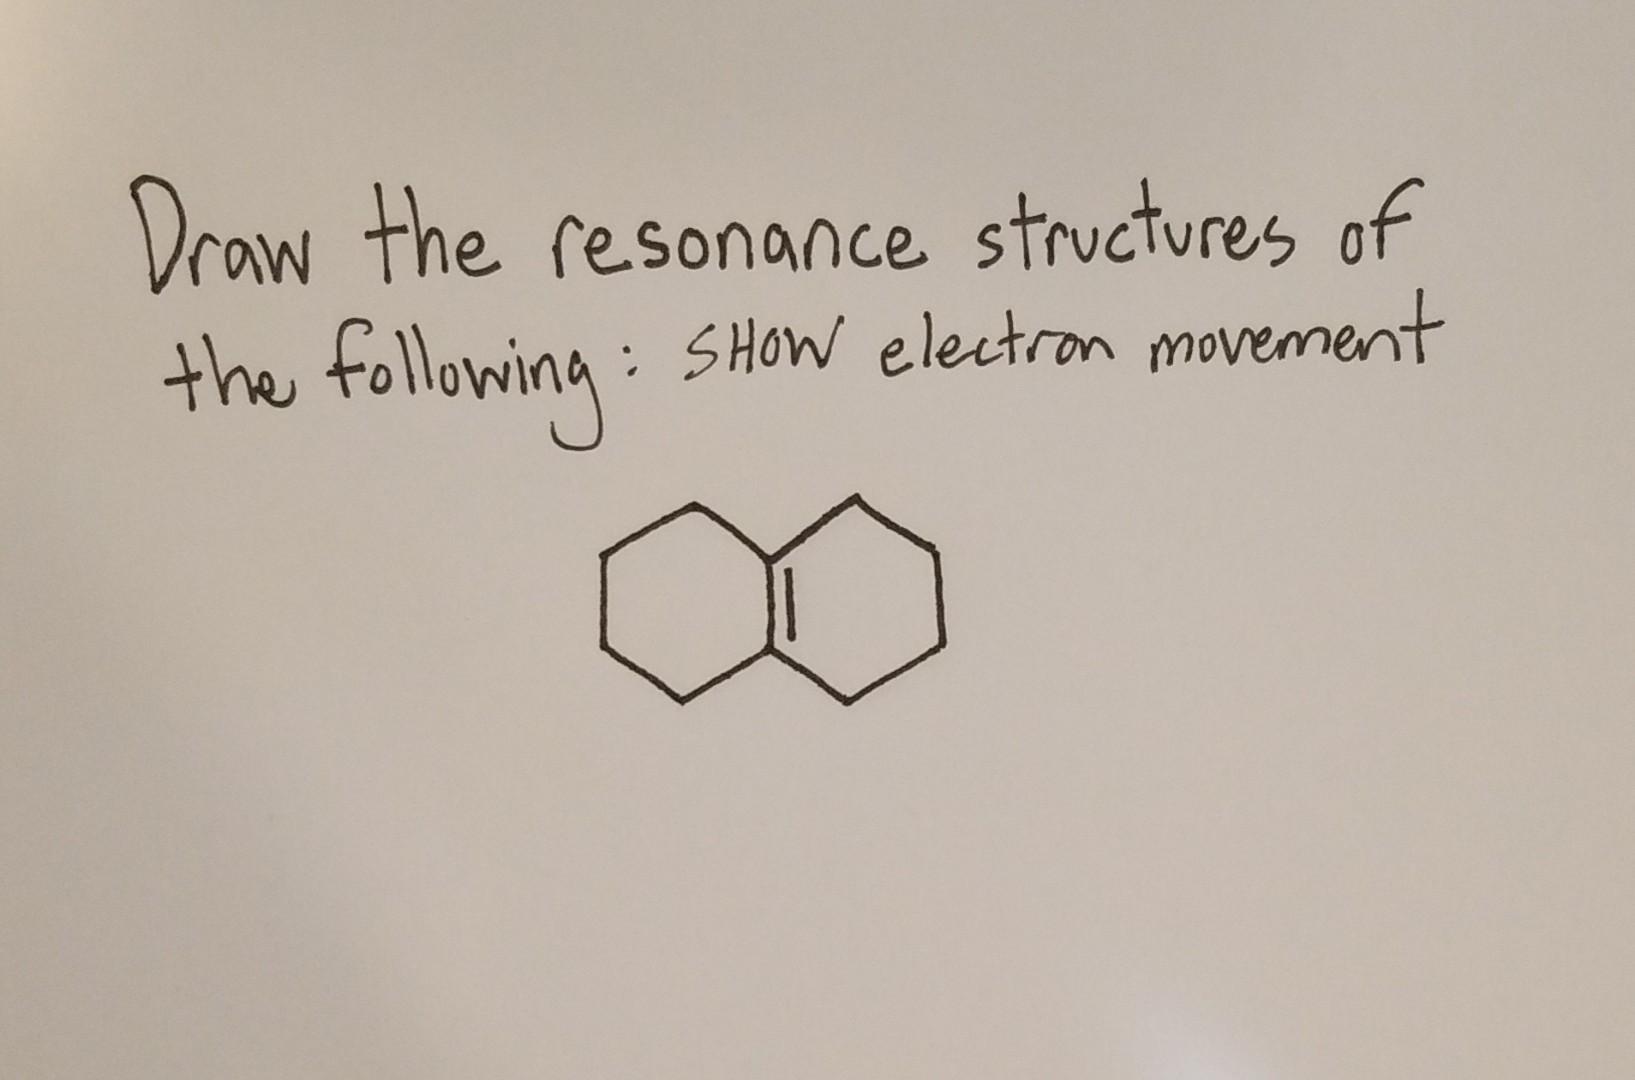 Draw the resonance structures of
the following: SHOW electron movement